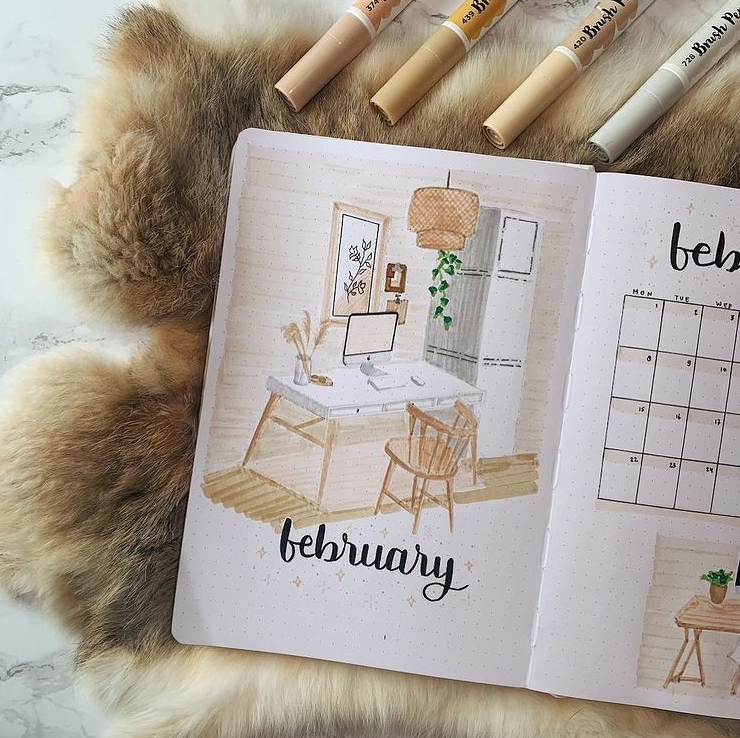 374 Br
439 Br
420 Brush P
728 Brush Pe
february
feb
MON TUE WED
1 2 3
8 9 10
15 16 17
22 23 24